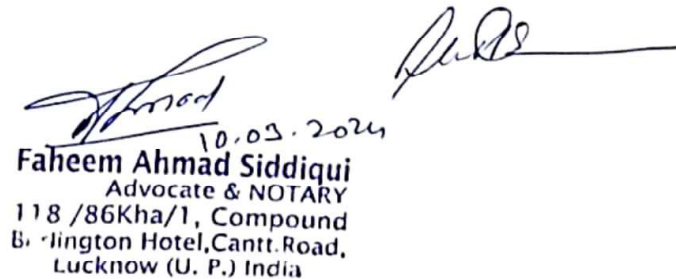 10.03.2024
Faheem Ahmad Siddiqui
Advocate & NOTARY
118 /86Kha/1, Compound
Hotel,Cantt.Road,
Lucknow (U. P.) India